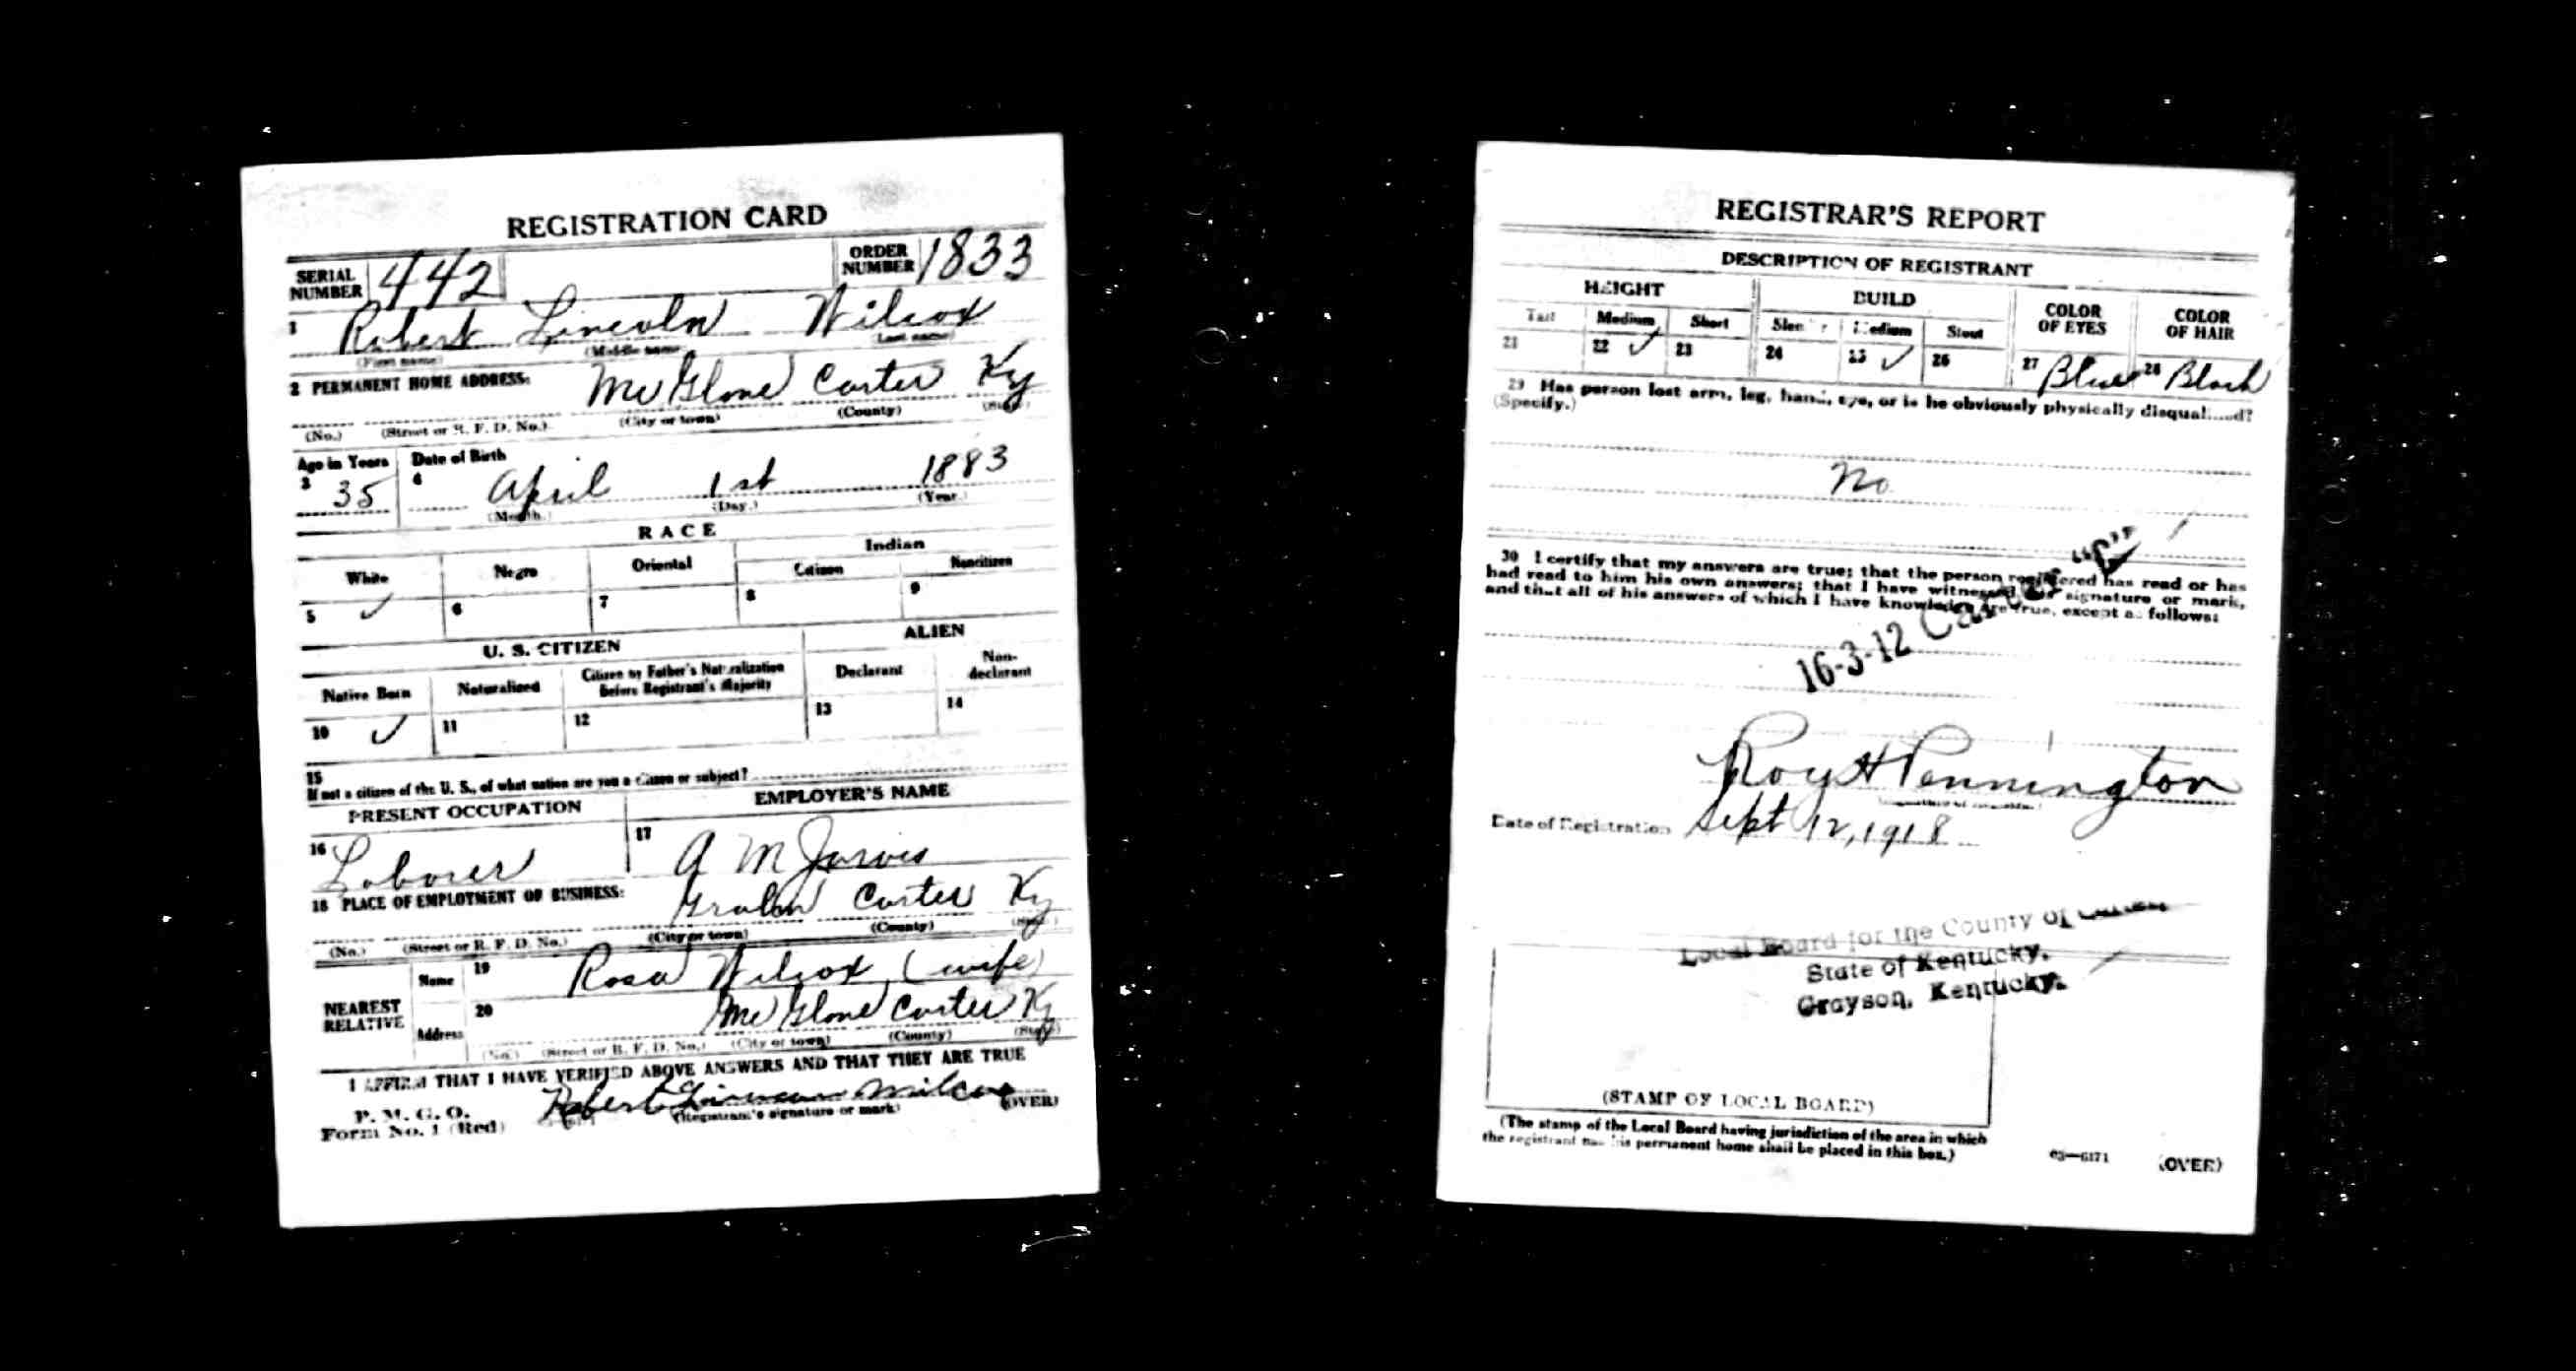 REGISTRATION CARD
SERIAL NUMBER 442 ORDER NUMBER 1833
1 Robert Lincoln Wilcox
(First name) (Middle name) (Last name)
2 PERMANENT HOME ADDRESS: McGlone Carter Ky
(No.) (Street or R. F. D. No.) (City or town) (County) (State)
Age in Years Date of Birth
3 35 4 April 1st 1883
(Month.) (Day.) (Year.)
RACE
White Negro Oriental Indian
Citizen Noncitizen
5 ✓ 6 7 8 9
U. S. CITIZEN ALIEN
Native Born Naturalized Citizen by Father's Naturalization Before Registrant's Majority Declarant Non-declarant
10 ✓ 11 12 13 14
15
If not a citizen of the U. S., of what nation are you a citizen or subject?
PRESENT OCCUPATION EMPLOYER'S NAME
16 Laborer 17 A M Jarvis
18 PLACE OF EMPLOYMENT OR BUSINESS: Carter Ky
(No.) (Street or R. F. D. No.) (City or town) (County) (State)
NEAREST RELATIVE Name 19 Rosa Wilcox (wife)
Address 20 McGlone Carter Ky
(No.) (Street or R. F. D. No.) (City or town) (County) (State)
I AFFIRM THAT I HAVE VERIFIED ABOVE ANSWERS AND THAT THEY ARE TRUE
P. M. G. O.
Form No. 1 (Red) Robert Wilcox
(Registrant's signature or mark) (OVER)
REGISTRAR'S REPORT
DESCRIPTION OF REGISTRANT
HEIGHT BUILD COLOR OF EYES COLOR OF HAIR
Tall Medium Short Slender Medium Stout
21 22 ✓ 23 24 25 ✓ 26 27 Blue 28 Black
29 Has person lost arm, leg, hand, eye, or is he obviously physically disqualified?
(Specify.)
No
30 I certify that my answers are true; that the person registered has read or has
had read to him his own answers; that I have witnessed his signature or mark,
and that all of his answers of which I have knowledge are true, except as follows:
16-3-12 Carter "C"
Roy H Pennington
Date of Registration Sept 12, 1918
Local Board for the County of Carter
State of Kentucky.
Grayson, Kentucky.
(STAMP OF LOCAL BOARD)
(The stamp of the Local Board having jurisdiction of the area in which
the registrant has his permanent home shall be placed in this box.)
03—6171 (OVER)